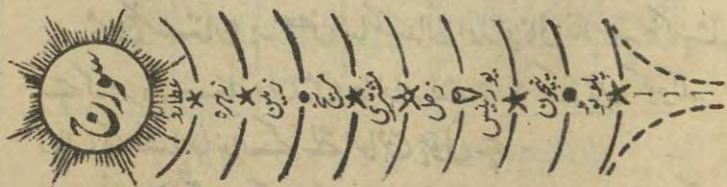 سورج
عطارد
زہرہ
زمین
مریخ
مشتری
زحل
یورینس
نیپچون
پلوٹو